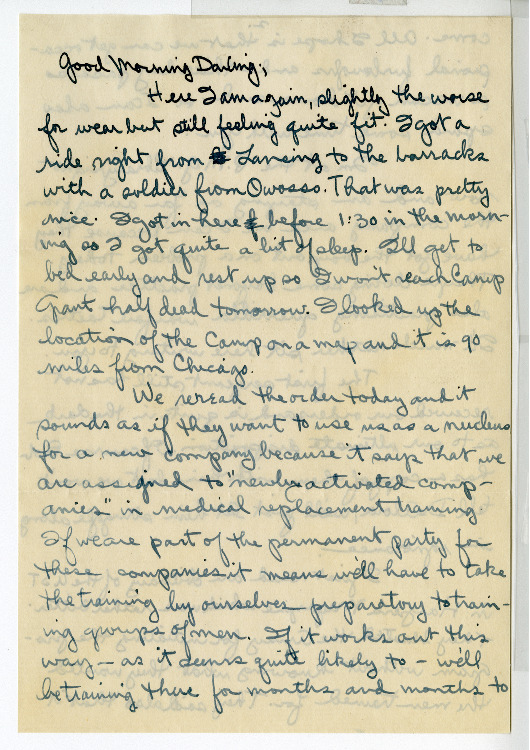 Good Morning Darling,
Here I am again, slightly the worse
for wear but still feeling quite fit. I got a
ride right from Lansing to the barracks
with a soldier from Owosso. That was pretty
nice. I got in here before 1:30 in the morn-
ing so I got quite a bit of sleep. I'll get to
bed early and rest up so I won't reach Camp
Grant half dead tomorrow. I looked up the
location of the Camp on a map and it is 90
miles from Chicago.
We reread the order today and it
sounds as if they want to use us as a nucleus
for a new company because it says that we
are assigned to "newly activated comp-
anies" in medical replacement training.
If we are part of the permanent party for
these companies it means we'll have to take
the training by ourselves preparatory to train-
ing groups of men. If it works out this
way — as it seems quite likely to — we'll
be training there for months and months to